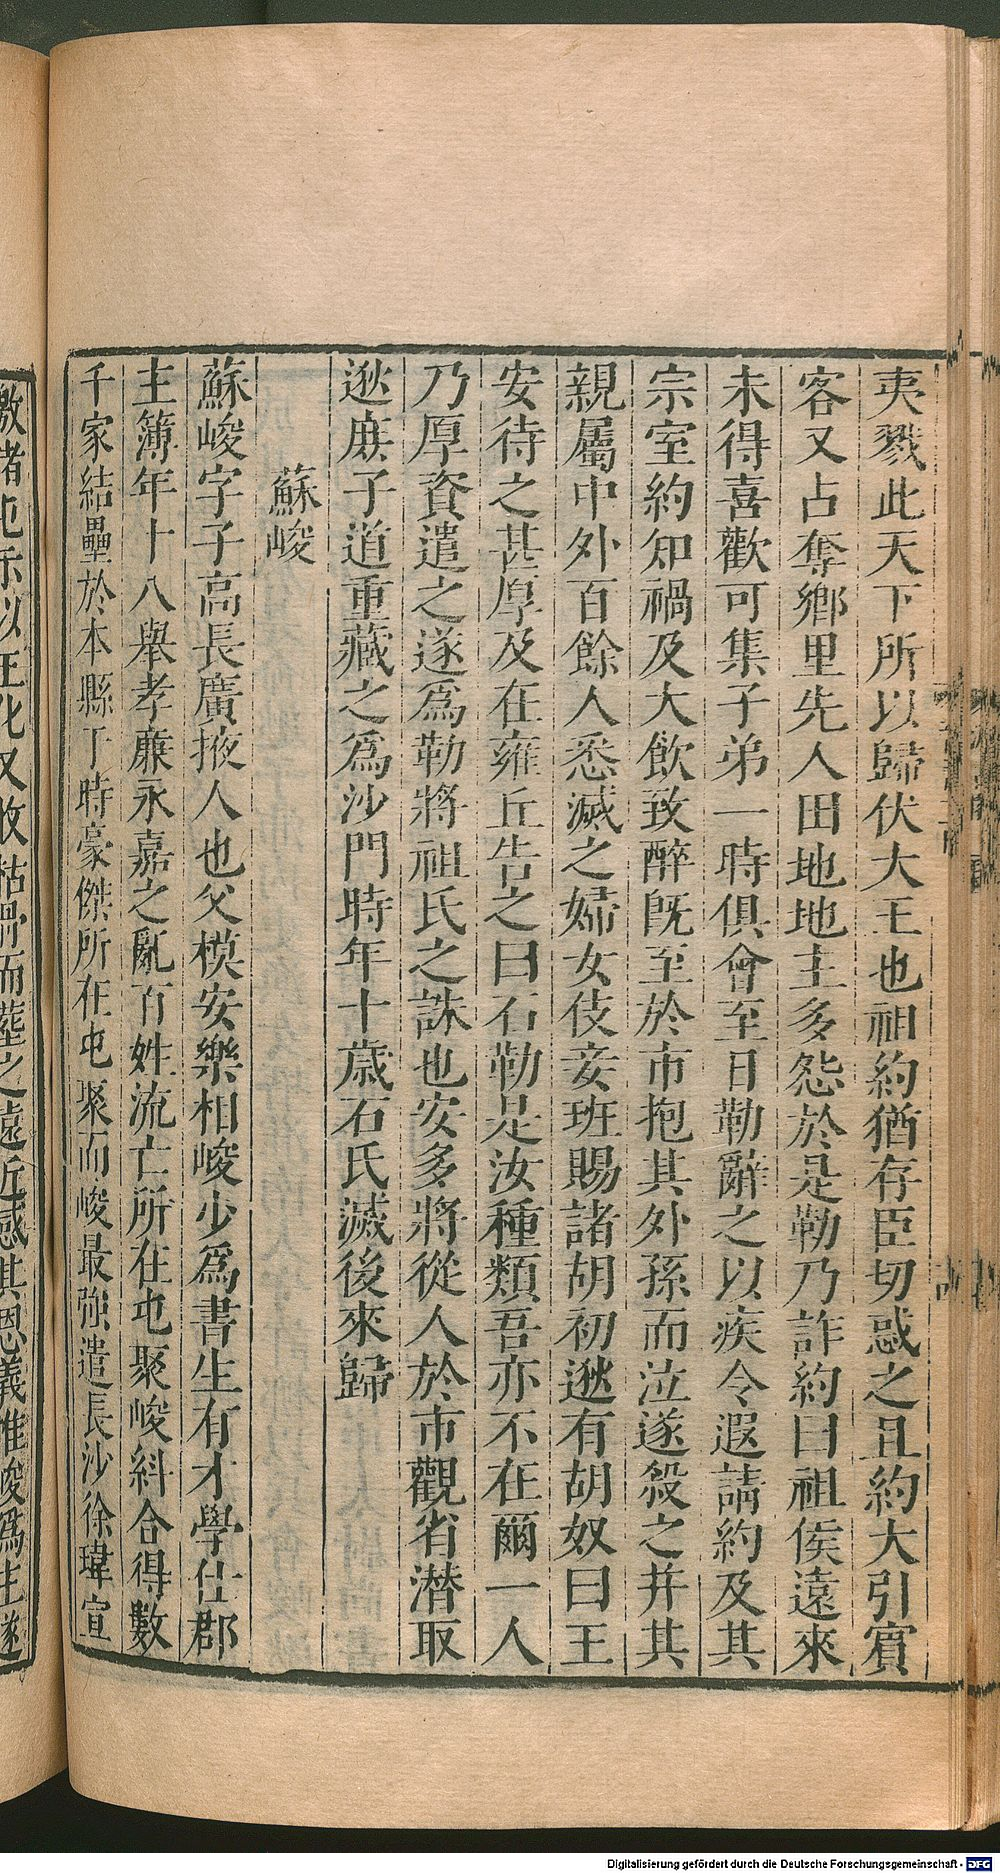 夷戮此天下所以歸伏大王也祖約猶存臣切惑之且約大引賓
客又占奪鄉里先人田地地主多怨於是勒乃詐約曰祖侯遠來
未得喜歡可集子弟一時俱會至日勒辭之以疾令遐請約及其
宗室約知禍及大飲致醉既至於市抱其外孫而泣遂殺之并其
親屬中外百餘人悉滅之婦女伎妾班賜諸胡初逖有胡奴曰王
安待之甚厚及在雍丘告之曰石勒是汝種類吾亦不在爾一人
乃厚資遣之遂為勒將祖氏之誅也安多將從人於市觀省潛取
逖庶子道重藏之為沙門時年十歲石氏滅後來歸
蘇峻
蘇峻字子高長廣掖人也父模安樂相峻少為書生有才學仕郡
主簿年十八舉孝廉永嘉之亂百姓流亡所在屯聚峻糾合得數
千家結壘於本縣于時豪傑所在屯聚而峻最強遣長沙徐瑋宣
檄諸屯示以王化又收枯骨而葬之遠近感其恩義推峻為主遂
Digitalisierung gefördert durch die Deutsche Forschungsgemeinschaft - DFG